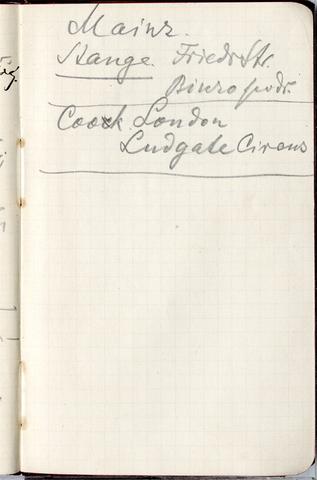 Mainz.
Stange. Friedr Str.
Biuro podr.
Coock London
Ludgate Circus